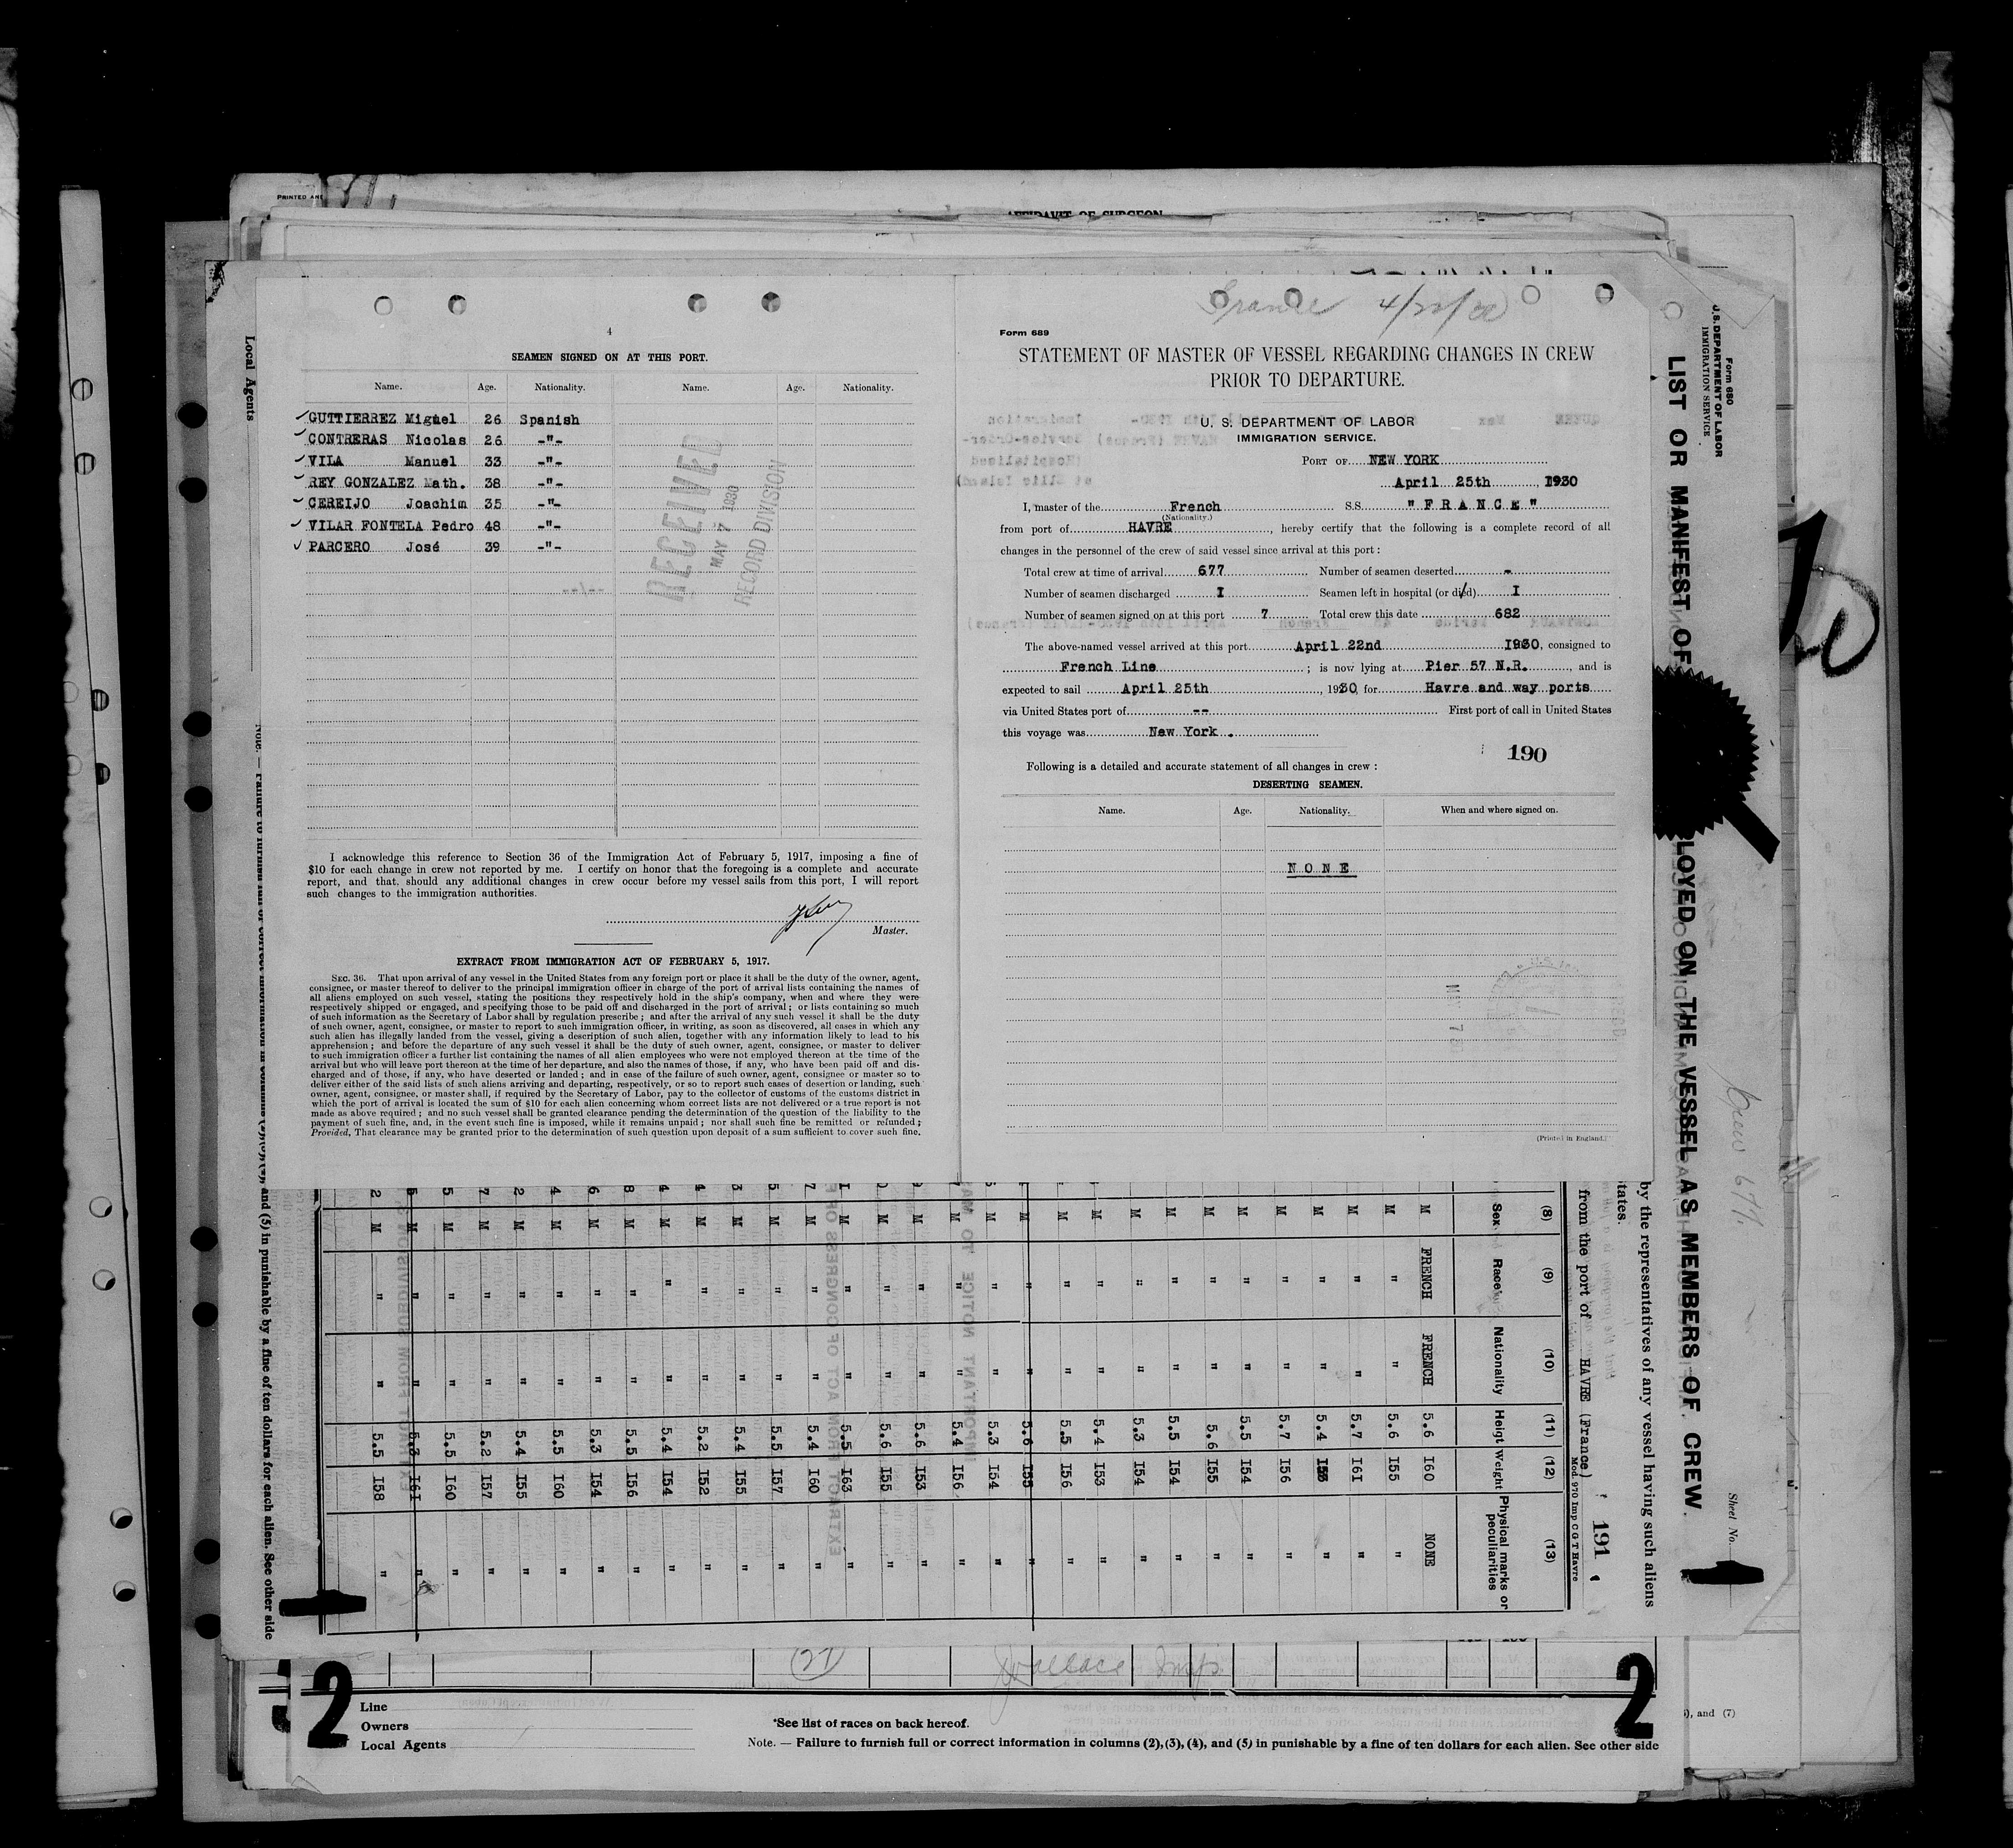 PRINTED AND
AFFIDAVIT OF SURGEON
4
SEAMEN SIGNED ON AT THIS PORT.
Name. Age. Nationality. Name. Age. Nationality.
GUTTIERREZ Miguel 26 Spanish
CONTRERAS Nicolas 26 -"-
VILA Manuel 33 -"-
REY GONZALEZ Math. 38 -"-
CEREIJO Joachim 35 -"-
VILAR FONTELA Pedro 48 -"-
PARCERO José 39 -"-
--/--
RECEIVED
MAY 7 1930
RECORD DIVISION
I acknowledge this reference to Section 36 of the Immigration Act of February 5, 1917, imposing a fine of
$10 for each change in crew not reported by me. I certify on honor that the foregoing is a complete and accurate
report, and that should any additional changes in crew occur before my vessel sails from this port, I will report
such changes to the immigration authorities.
Master.
EXTRACT FROM IMMIGRATION ACT OF FEBRUARY 5, 1917.
SEC. 36. That upon arrival of any vessel in the United States from any foreign port or place it shall be the duty of the owner, agent,
consignee, or master thereof to deliver to the principal immigration officer in charge of the port of arrival lists containing the names of
all aliens employed on such vessel, stating the positions they respectively hold in the ship's company, when and where they were
respectively shipped or engaged, and specifying those to be paid off and discharged in the port of arrival; or lists containing so much
of such information as the Secretary of Labor shall by regulation prescribe; and after the arrival of any such vessel it shall be the duty
of such owner, agent, consignee, or master to report to such immigration officer, in writing, as soon as discovered, all cases in which any
such alien has illegally landed from the vessel, giving a description of such alien, together with any information likely to lead to his
apprehension; and before the departure of any such vessel it shall be the duty of such owner, agent, consignee, or master to deliver
to such immigration officer a further list containing the names of all alien employees who were not employed thereon at the time of the
arrival but who will leave port thereon at the time of her departure, and also the names of those, if any, who have been paid off and dis-
charged and of those, if any, who have deserted or landed; and in case of the failure of such owner, agent, consignee or master so to
deliver either of the said lists of such aliens arriving and departing, respectively, or so to report such cases of desertion or landing, such
owner, agent, consignee, or master shall, if required by the Secretary of Labor, pay to the collector of customs of the customs district in
which the port of arrival is located the sum of $10 for each alien concerning whom correct lists are not delivered or a true report is not
made as above required; and no such vessel shall be granted clearance pending the determination of the question of the liability to the
payment of such fine, and, in the event such fine is imposed, while it remains unpaid; nor shall such fine be remitted or refunded;
Provided, That clearance may be granted prior to the determination of such question upon deposit of a sum sufficient to cover such fine.
France 4/22/30
Form 689
STATEMENT OF MASTER OF VESSEL REGARDING CHANGES IN CREW
PRIOR TO DEPARTURE.
U. S. DEPARTMENT OF LABOR
IMMIGRATION SERVICE.
PORT OF NEW YORK
April 25th, 1930
I, master of the French S.S. "FRANCE"
(Nationality.)
from port of HAVRE, hereby certify that the following is a complete record of all
changes in the personnel of the crew of said vessel since arrival at this port:
Total crew at time of arrival 677 Number of seamen deserted -
Number of seamen discharged I Seamen left in hospital (or died) I
Number of seamen signed on at this port 7 Total crew this date 682
The above-named vessel arrived at this port April 22nd 1930, consigned to
French Line; is now lying at Pier 57 N.R., and is
expected to sail April 25th, 1930, for Havre and way ports
via United States port of -- First port of call in United States
this voyage was New York.
190
Following is a detailed and accurate statement of all changes in crew:
DESERTING SEAMEN.
Name. Age. Nationality. When and where signed on.
NONE
(Printed in England.)
Form 680
U.S. DEPARTMENT OF LABOR
IMMIGRATION SERVICE
LIST OR MANIFEST OF LOYED ON THE VESSEL AS MEMBERS OF CREW.
Sheet No.
Crew 677.
by the representatives of any vessel having such aliens
tates.
from the port of HAVRE (France)
191
Mod. 970 Imp C G T Havre
(8) (9) (10) (11) (12) (13)
Sex Race Nationality Heigt Weight Physical marks or peculiarities
M FRENCH FRENCH 5.6 160 NONE
M " " 5.6 155 "
M " " 5.7 161 "
M " " 5.4 "
M " " 5.7 156 "
M " " 5.5 154 "
M " " 5.6 155 "
M " " 5.5 154 "
M " " 5.3 154 "
M " " 5.4 153 "
M " " 5.5 156 "
M " " 5.6 155 "
M " " 5.3 154 "
M " " 5.4 156 "
M " " 5.6 153 "
M " " 5.6 155 "
M " " 5.5 163 "
M " " 5.4 160 "
M " " 5.5 157 "
M " " 5.4 155 "
M " " 5.2 152 "
M " " 5.4 154 "
M " " 5.5 156 "
M " " 5.3 154 "
M " " 5.5 160 "
M " " 5.4 155 "
M " " 5.2 157 "
M " " 5.5 160 "
M " " 5.3 161 "
M " " 5.5 158 "
Local Agents
Note. — Failure to furnish full or correct information in columns (2),(3),(4), and (5) in punishable by a fine of ten dollars for each alien. See other side
Wallace Insp.
2
Line
Owners
Local Agents
*See list of races on back hereof.
Note. — Failure to furnish full or correct information in columns (2),(3),(4), and (5) in punishable by a fine of ten dollars for each alien. See other side
2
), and (7)